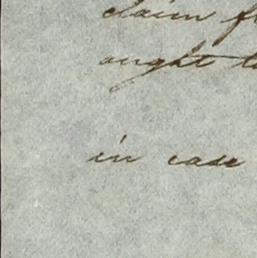 claim f
ought t
in case